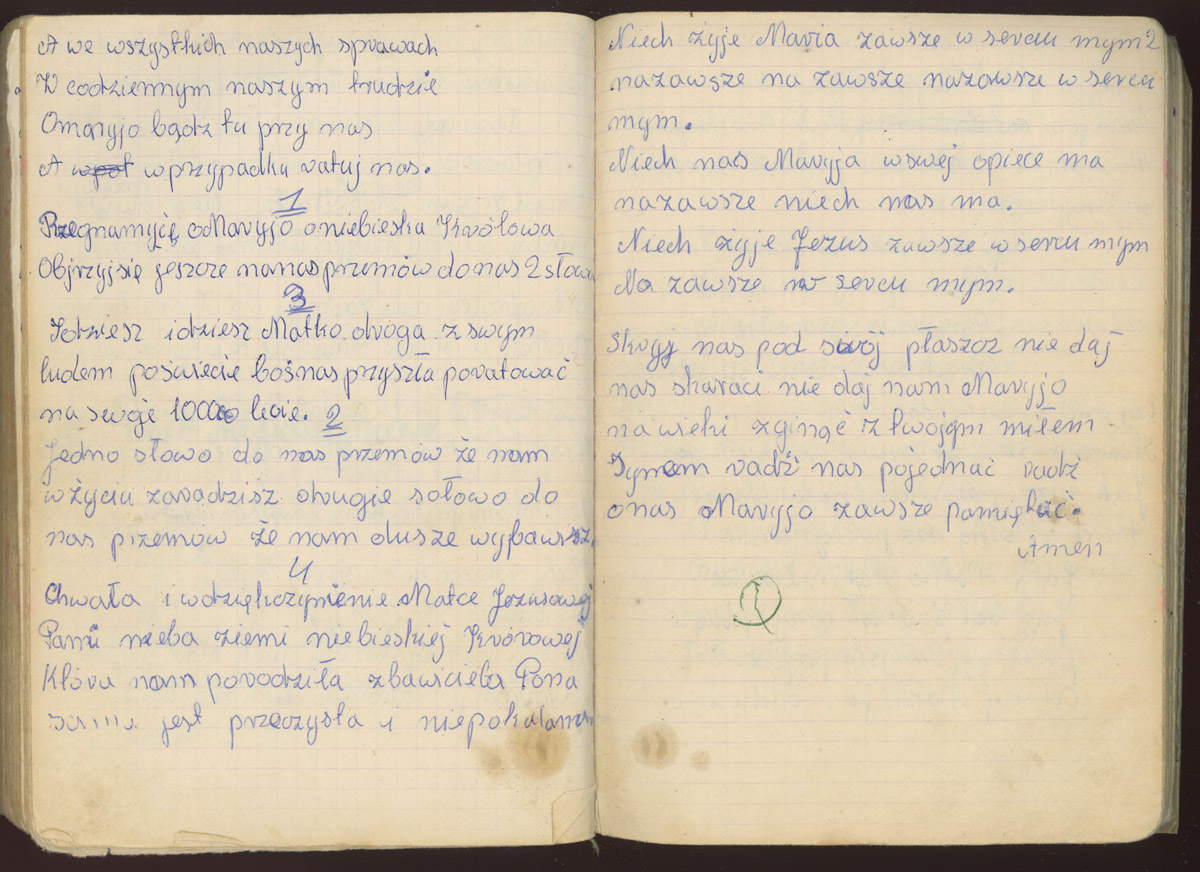 A we wszystkich naszych sprawach
W codziennym naszym trudzie
Omaryjo bądz tu przy nas
A wpot w przypadku ratuj nas.
1
Rzegnamyćię oMaryjo oniebieska Królowa
Objrzyjsię jeszcze nanas przemów do nas 2 słowa
3
Idziesz i dziesz Matko droga z swym
ludem poświecie boś nas przyszła poratować
na swoje 1000 lecie. 2
Jedno słowo do nas przemów że nam
w życiu zaradzisz drugie sołowo do
nas przemów że nam dusze wybawisz.
4
Chwała i wdzięhczynienie Matce Jezusowej
Panu nieba ziemi niebieskiej Krórowej
Która nam porodziła zbawiciela Pana
jest przeczysta i niepokalana
Niech żyje Maria zawsze w sercu mym 2
nazawsze na zawsze nazawsze w sercu
mym.
Niech nas Maryja wswej opiece ma
nazawsze niech nas ma.
Niech żyje Jezus zawsze w sercu mym
Na zawsze w sercu mym.
Skryj nas pod swój płaszcz nie daj
nas skaraci nie daj nam Maryjo
nawieki zginąć z twojym miłem
Synem radź nas pojednać radź
onas Maryjo zawsze pamiętać.
Amen